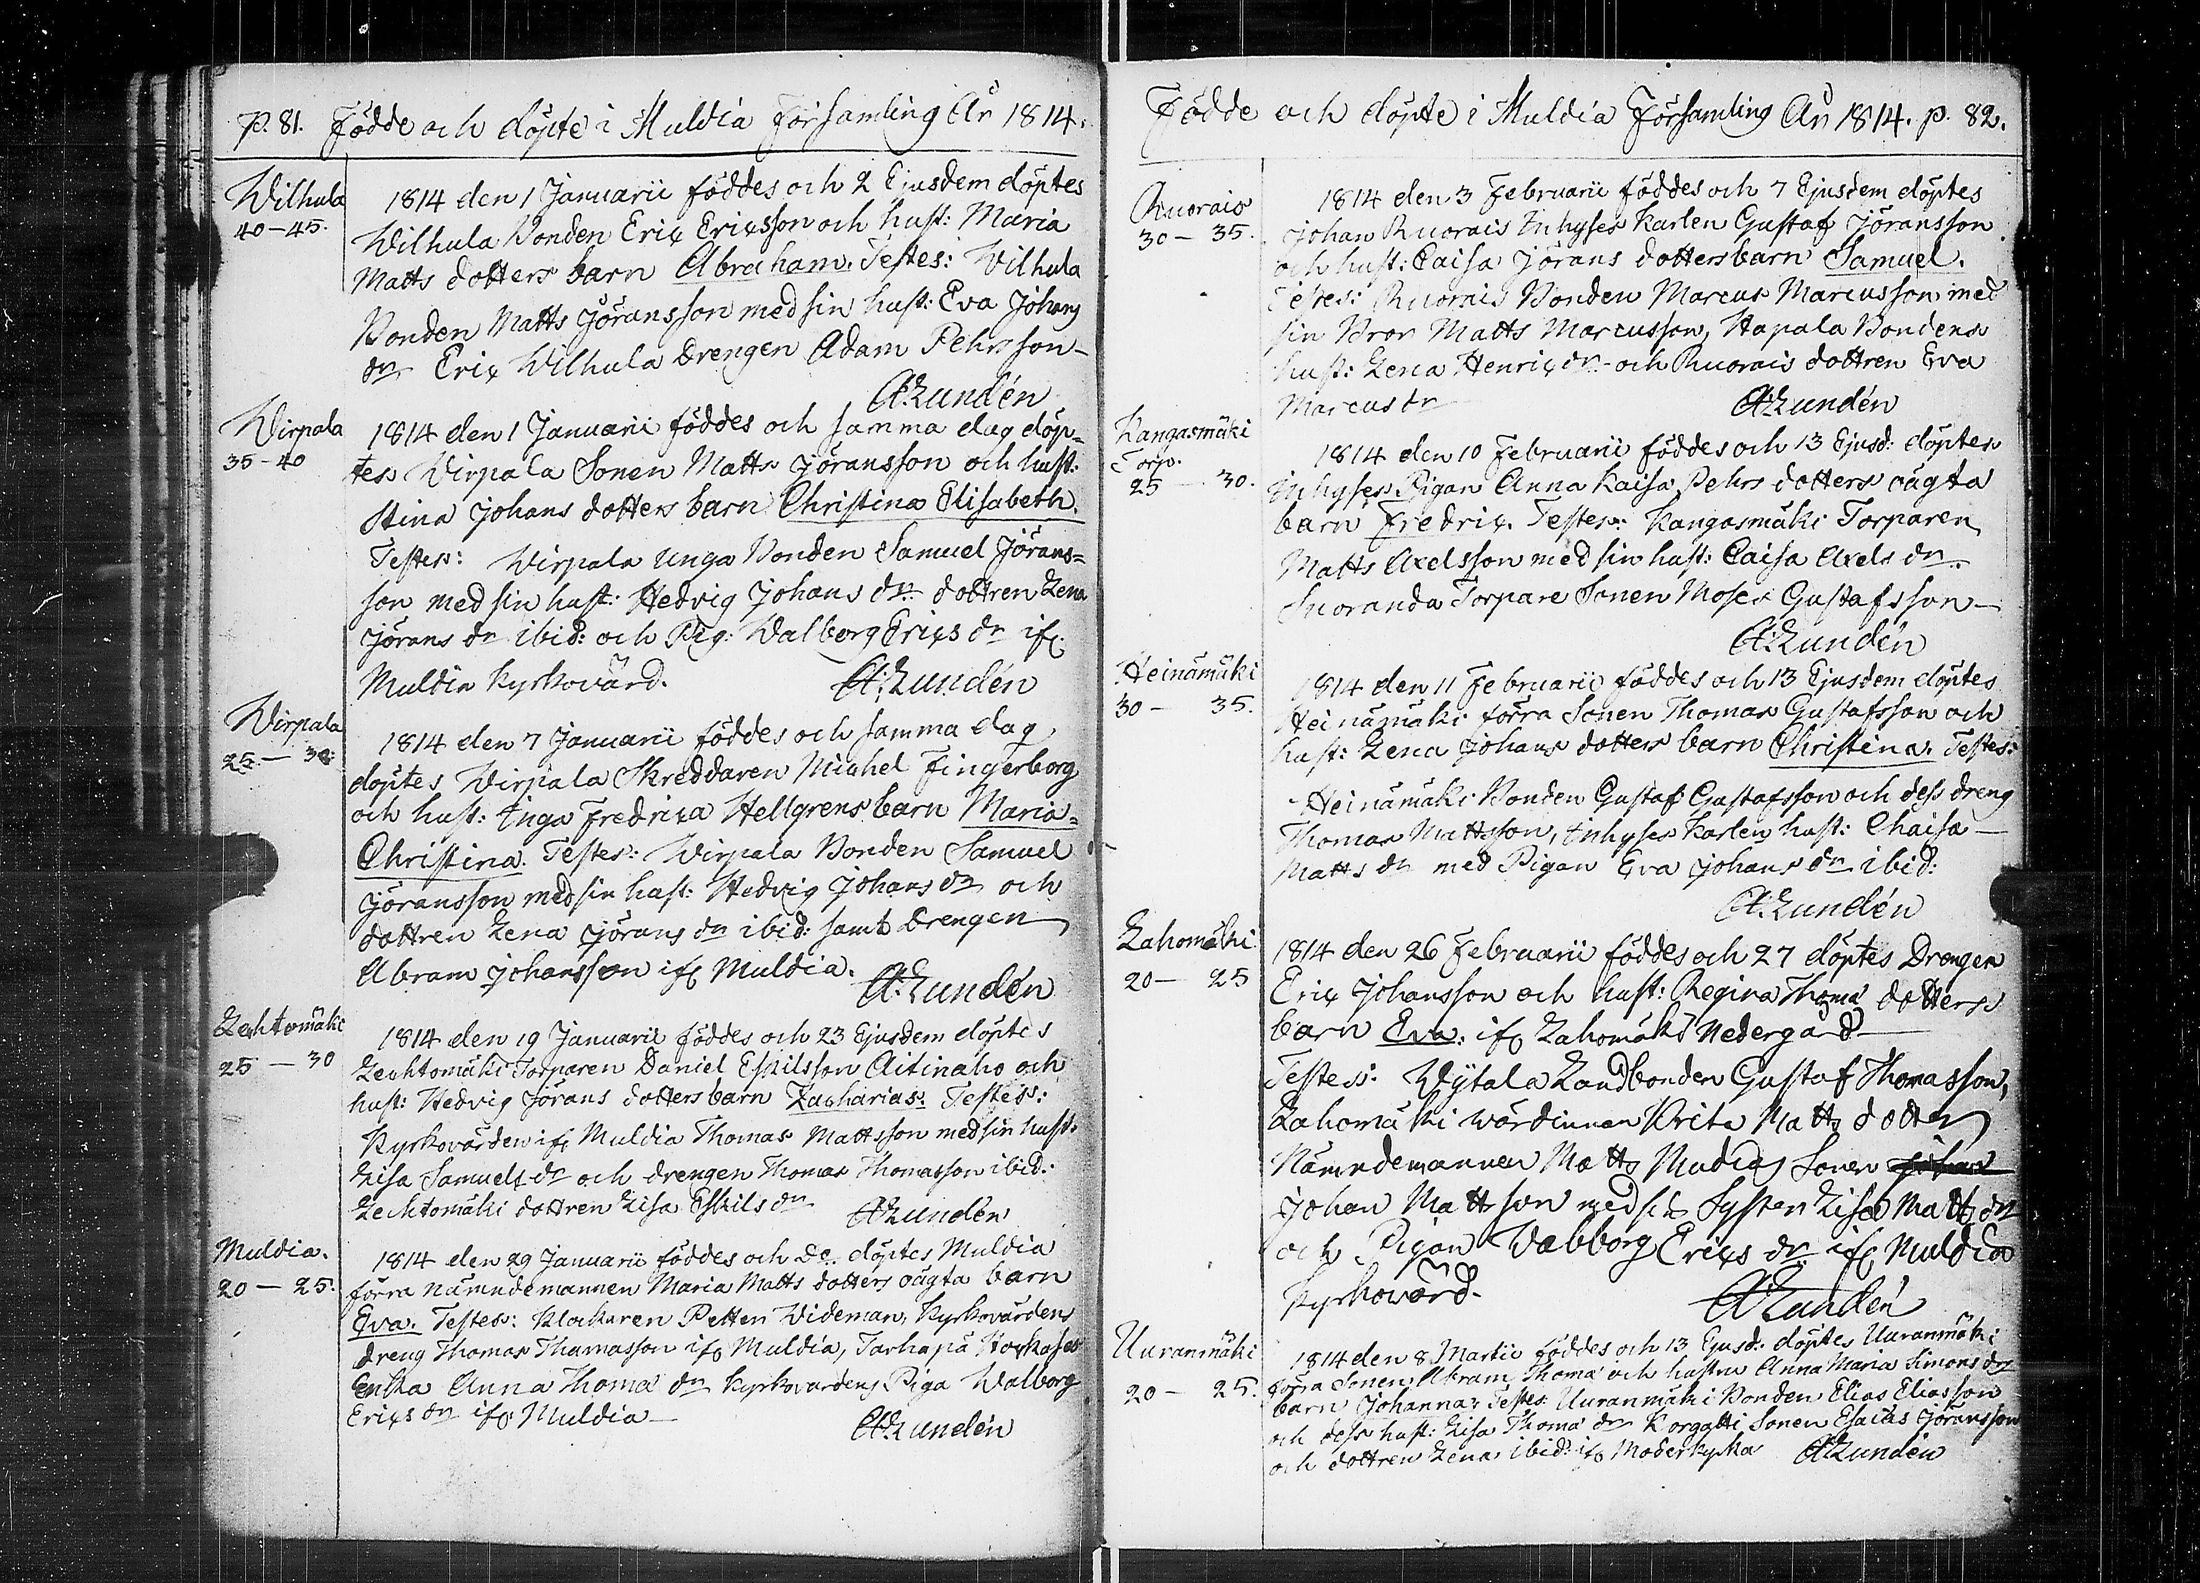 p. 81. Födde och döpte i Muldia Församling År 1814.
Wilhula
40-45.
1814 den 1 Januarii föddes och 2 Ejusdem döptes
Wilhula Bonden Eric Ericsson och hust: Maria
Matts dotters barn Abraham. Testes: Wilhula
Bonden Matts Jöransson med sin hust: Eva Johans
dr Eric Wilhula Drengen Adam Pehrsson-
A:Lundén
Wirpala
35-40
1814 den 1 Januarii föddes och samma dag döp-
tes Wirpala Sonen Matts Jöransson och hust:
Stina Johans dotters barn Christina Elisabeth.
Testes: Wirpala unga Bonden Samuel Jörans=
son med sin hust: Hedvig Johans dr dottren Lena
Jörans dr ibid: och Pig: Walborg Erics dr ifr:
Muldia Kyrkovärd.
A:Lundén
Wirpala
25.- 30
1814 den 7 Januarii föddes och samma dag
döptes Wirpala Skreddaren Michel Fingerborg
och hust: Inga Fredrica Hellgrens barn Maria=
Christina. Testes: Wirpala Bonden Samuel
Jöransson med sin hust: Hedvig Johans dr och
dottren Lena Jörans dr ibid: samt Drengen
Abram Johansson ifr Muldia.
A:Lundén
Lechtomäki
25 - 30
1814 den 19 Januarii föddes och 23 Ejusdem döptes
Lechtomäki Torparen Daniel Eskilsson Aitinaho och
hust: Hedvig Jörans dotters barn Zacharias. Testes:
Kyrkovärden ifr Muldia Thomas Mattsson med sin hust:
Lisa Samuels dr och drengen Thomas Thomasson ibid:
Lechtomäki dottren Lisa Eskils dr
A:Lundén
Muldia.
20 - 25.
1814 den 29 Januarii föddes och Do döptes Muldia
förra Nämndemannen Maria Matts dotters oägta barn
Eva. Testes: Klockaren Petter Wideman, Kyrkovärdens
dreng Thomas Thomasson ifr Muldia, Tarhapä
Enka Anna Thoma dr Kyrkovärdens Piga Walborg
Erics dr ifr Muldia-
A:Lundén
Födde och döpte i Muldia Församling År 1814. p. 82.
Ruorais
30 - 35.
1814 den 3 Februarii föddes och 7 Ejusdem döptes
Johan Ruorais Inhyses Karlen Gustaf Jöransson
och hust: Caisa Jörans dotters barn Samuel.
Testes: Ruorais Bonden Marcus Marcusson med
sin Bror Matts Marcusson, Hapala Bondens
hust: Lena Henrics dr- och Ruorais dottren Eva
Marcus dr
A:Lundén
Kangasmäki
Torp.
25 - 30.
1814 den 10 Februarii föddes och 13 Ejusd: döptes
Inhyses Pigan Anna Kaisa Pehrs dotters oägta
barn Fredric. Testes: Kangasmäki Torparen
Matts Axelsson med sin hust: Caisa Axels dr.
Suoranda Torpare Sonen Moses Gustafsson-
A:Lundén
Heinämäki
30 - 35.
1814 den 11 Februarii föddes och 13 Ejusdem döptes
Heinämäki förra Sonen Thomas Gustafsson och
hust: Lena Johans dotters barn Christina. Testes:
Heinämäki Bonden Gustaf Gustafsson och dess dreng
Thomas Mattsson, Inhyses Karlens hust: Chaisa-
Matts dr med Pigan Eva Johans dr ibid:
A:Lundén
Lahomäki
20 - 25
1814 den 26 Februarii föddes och 27 döptes Drengen
Eric Johansson och hust: Regina Thoma dotters
barn Eva. ifr Lahomäki Nedergård-
Testes: Wytala Landbonden Gustaf Thomasson,
Lahomäki wärdinnan Brita Matts dotter
Nämndemannen Matts Mudias Sonen
Johan Mattsson med sin Syster Lisa Matts dr
och Pigan Vabborg Erics dr ifr Muldia
Kyrkovärd.
A:Lundén
Uuranmäki
20 - 25.
1814 den 8 Martii föddes och 13 Ejusd: döptes Uuranmäki
förra Sonen Abram Thoma och hustru Anna Maria Simons drs
barn Johanna. Testes: Uuranmäki Bonden Elias Eliasson
och dess hust: Lisa Thoma dr Sonen Esaias Jöransson
och dottren Lena ibid: ifr Moderkyrka
A:Lundén